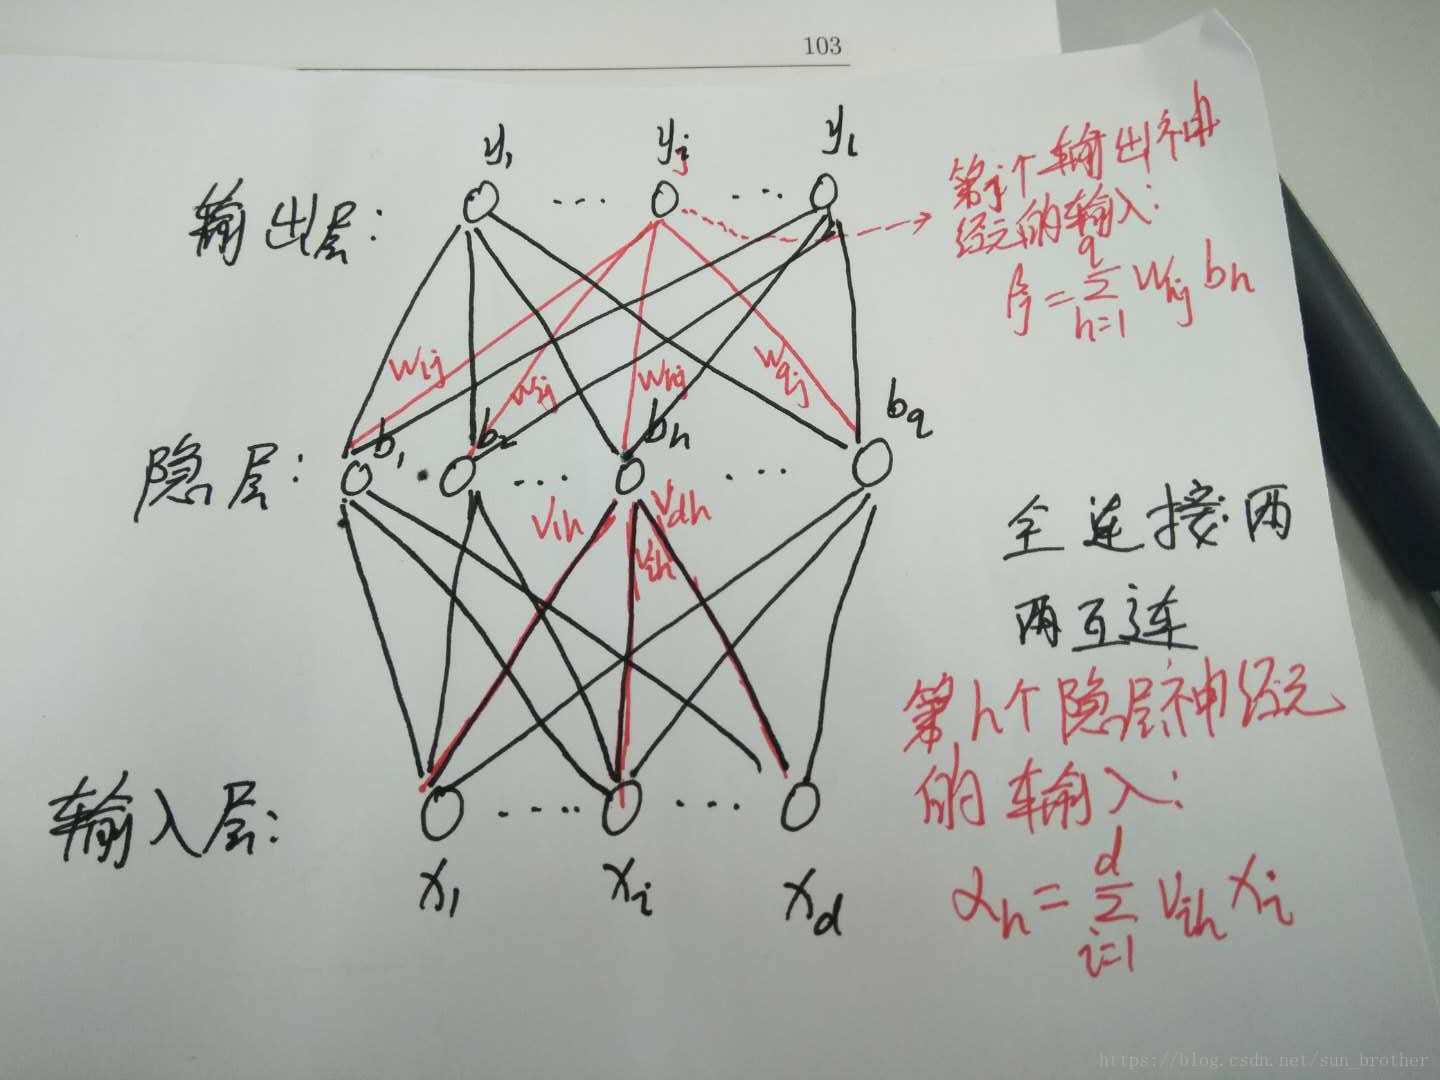 103
y₁ y_j y_l
输出层:
第j个输出神
经元的输入:
β_j = Σ_{h=1}^{q} w_{hj} b_h
w_{1j} w_{2j} w_{hj} w_{qj}
b₁ b₂ b_h b_q
隐层:
v_{1h} v_{ih} v_{dh}
全连接:两
两互连
第h个隐层神经元
的输入:
α_h = Σ_{i=1}^{d} v_{ih} x_i
输入层:
x₁ x_i x_d
https://blog.csdn.net/sun_brother